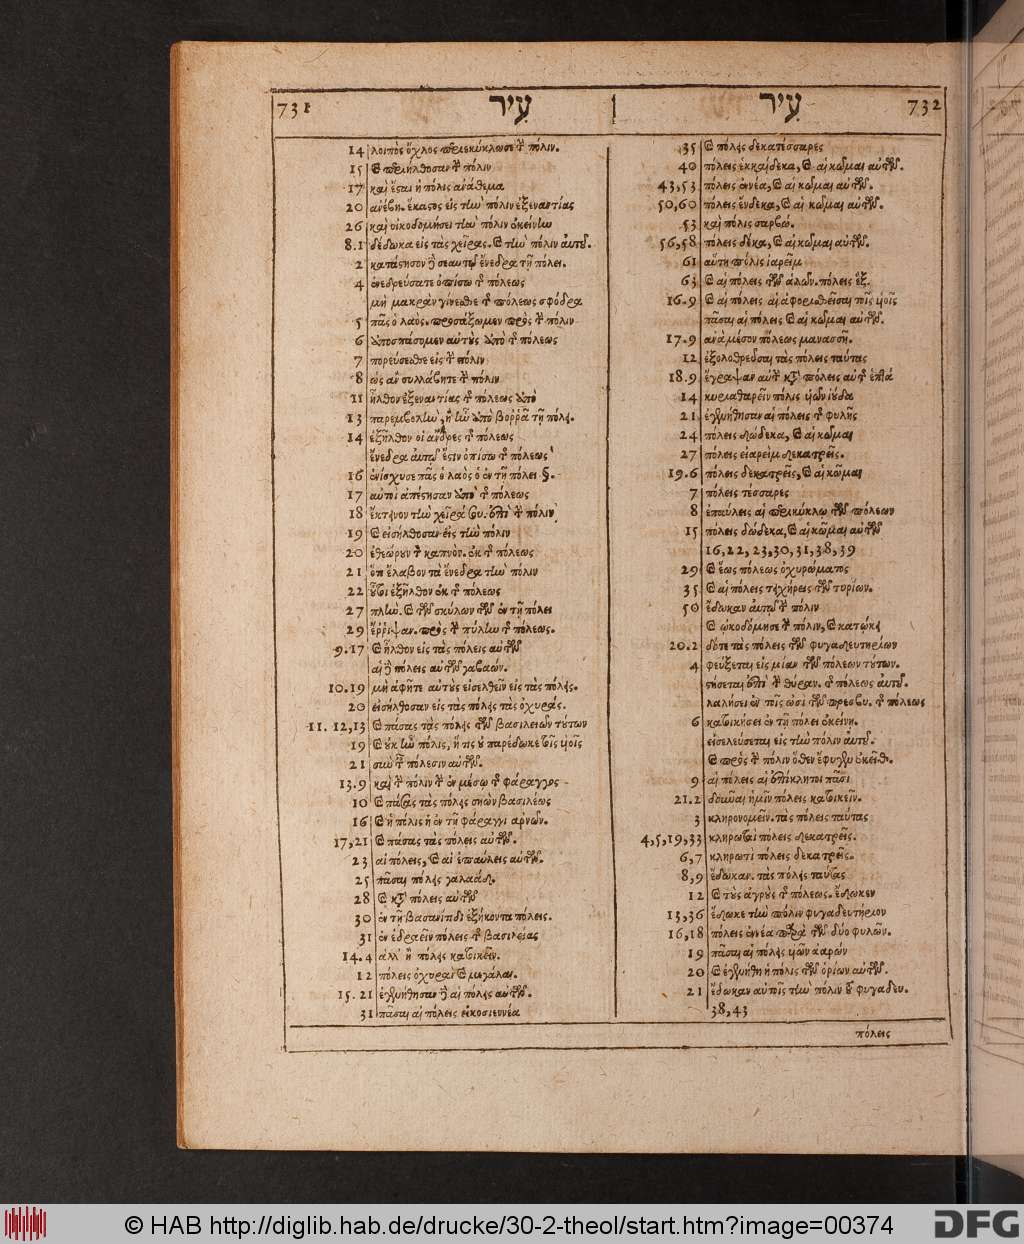 731 עִיר עִיר 732
14 λοιπὸς ὄχλος περιεκύκλωσε τὴν πόλιν.
15 καὶ περιήλθοσαν τὴν πόλιν
17 καὶ ἔσται ἡ πόλις ἀνάθεμα
20 ἀνέβη. ἕκαστος εἰς τὴν πόλιν ἐξεναντίας
26 καὶ οἰκοδομήσει τὴν πόλιν ἐκείνην
8.1 δέδωκα εἰς τὰς χεῖρας. καὶ τὴν πόλιν αὐτοῦ.
2 κατάστησον δὲ σεαυτῷ ἔνεδρα τῇ πόλει.
4 ἐνεδρεύσατε ὀπίσω τῆς πόλεως
μὴ μακρὰν γίνεσθε τῆς πόλεως σφόδρα
5 πᾶς ὁ λαὸς. προσάξωμεν πρὸς τὴν πόλιν
6 ἀποσπάσομεν αὐτοὺς ἀπὸ τῆς πόλεως
7 πορεύσεσθε εἰς τὴν πόλιν
8 ὡς ἂν συλλάβητε τὴν πόλιν
11 ἦλθον ἐξεναντίας τῆς πόλεως ἀπὸ
13 παρεμβολὴν, ἣ ἦν ἀπὸ βορρᾶ τῇ πόλει.
14 ἐξῆλθον οἱ ἄνδρες τῆς πόλεως
ἔνεδρα αὐτῷ ἐστιν ὀπίσω τῆς πόλεως
16 ἐνίσχυσε πᾶς ὁ λαὸς ὁ ἐν τῇ πόλει §.
17 αὐτοὶ ἀπέστησαν ἀπὸ τῆς πόλεως
18 ἔκτεινον τὴν χεῖρά σου. ἐπὶ τὴν πόλιν
19 καὶ εἰσήλθοσαν εἰς τὴν πόλιν
20 ἐθεώρουν τὸν καπνὸν. ἐκ τῆς πόλεως
21 ὅτι ἔλαβον τὰ ἔνεδρα τὴν πόλιν
22 οὗτοι ἐξῆλθον ἐκ τῆς πόλεως
27 πλὴν. καὶ τῶν σκύλων τῶν ἐν τῇ πόλει
29 ἔρριψαν. πρὸς τὴν πύλην τῆς πόλεως.
9.17 καὶ ἦλθον εἰς τὰς πόλεις αὐτῶν
αἱ δὲ πόλεις αὐτῶν γαβαών.
10.19 μὴ ἀφῆτε αὐτοὺς εἰσελθεῖν εἰς τὰς πόλεις.
20 εἰσήλθοσαν εἰς τὰς πόλεις τὰς ὀχυράς.
11. 12,13 καὶ πάσας τὰς πόλεις τῶν βασιλειῶν τούτων
19 καὶ οὐκ ἦν πόλις, ἥτις οὐ παρέδωκε τοῖς υἱοῖς
21 σὺν ταῖς πόλεσιν αὐτῶν.
13.9 καὶ τὴν πόλιν τὴν ἐν μέσῳ τῆς φάραγγος
10 καὶ πάσας τὰς πόλεις σηὼν βασιλέως
16 καὶ ἡ πόλις ἡ ἐν τῇ φάραγγι ἀρνῶν.
17,21 καὶ πάσας τὰς πόλεις αὐτῶν.
23 αἱ πόλεις, καὶ αἱ ἐπαύλεις αὐτῶν.
25 πᾶσαι πόλεις γαλαάδ.
28 καὶ κατὰ πόλεις αὐτῶν
30 ἐν τῇ βασανίτιδι ἑξήκοντα πόλεις.
31 ἐν ἐδραεῖν πόλεις τῆς βασιλείας
14.4 ἀλλ' ἢ πόλεις κατοικεῖν.
12 πόλεις ὀχυραὶ καὶ μεγάλαι.
15.21 ἐγενήθησαν δὲ αἱ πόλεις αὐτῶν.
31 πᾶσαι αἱ πόλεις εἰκοσιεννέα
35 καὶ πόλεις δεκατέσσαρες
40 πόλεις ἑκκαίδεκα, καὶ αἱ κῶμαι αὐτῶν.
43,53 πόλεις ἐννέα, καὶ αἱ κῶμαι αὐτῶν.
50,60 πόλεις ἕνδεκα, καὶ αἱ κῶμαι αὐτῶν.
53 καὶ πόλις σαρβώ.
56,58 πόλεις δέκα, καὶ αἱ κῶμαι αὐτῶν.
61 αὕτη πόλις ἰαρεὶμ
63 καὶ αἱ πόλεις τῶν ἁλῶν. πόλεις ἓξ.
16.9 καὶ αἱ πόλεις αἱ ἀφορισθεῖσαι τοῖς υἱοῖς
πᾶσαι αἱ πόλεις καὶ αἱ κῶμαι αὐτῶν.
17.9 ἀνὰ μέσον πόλεως μανασσῆ.
12 ἐξολοθρεῦσαι τὰς πόλεις ταύτας
18.9 ἔγραψαν αὐτὴν κατὰ πόλεις αὐτῆς ἑπτά
14 κυριαθαρεῖν πόλις υἱῶν ἰούδα
21 ἐγενήθησαν αἱ πόλεις τῆς φυλῆς
24 πόλεις δώδεκα, καὶ αἱ κῶμαι
27 πόλεις εἰαρεὶμ δεκατρεῖς.
19.6 πόλεις δεκατρεῖς, καὶ αἱ κῶμαι
7 πόλεις τέσσαρες
8 ἐπαύλεις αἱ περικύκλῳ τῶν πόλεων
15 πόλεις δώδεκα, καὶ αἱ κῶμαι αὐτῶν
16,22,23,30,31,38,39
29 καὶ ἕως πόλεως ὀχυρώματος
35 καὶ αἱ πόλεις τειχήρεις τῶν τυρίων.
50 ἔδωκαν αὐτῷ τὴν πόλιν
καὶ ᾠκοδόμησε τὴν πόλιν, καὶ κατῴκει
20.2 δότε τὰς πόλεις τῶν φυγαδευτηρίων
4 φεύξεται εἰς μίαν τῶν πόλεων τούτων.
στήσεται ἐπὶ τὴν θύραν. τῆς πόλεως αὐτοῦ.
λαλήσει ἐν τοῖς ὠσὶ τῶν πρεσβυ. τῆς πόλεως
6 κατοικήσει ἐν τῇ πόλει ἐκείνῃ.
εἰσελεύσεται εἰς τὴν πόλιν αὐτοῦ.
καὶ πρὸς τὴν πόλιν ὅθεν ἔφυγεν ἐκεῖθεν.
9 αἱ πόλεις αἱ ἐπίκλητοι πᾶσι
21.2 δοῦναι ἡμῖν πόλεις κατοικεῖν.
3 κληρονομεῖν. τὰς πόλεις ταύτας
4,5,19,33 κληρωταὶ πόλεις δεκατρεῖς.
6,7 κληρωτὶ πόλεις δεκατρεῖς.
8,9 ἔδωκαν. τὰς πόλεις ταύτας
12 καὶ τοὺς ἀγροὺς τῆς πόλεως. ἔδωκεν
13,36 ἔδωκε τὴν πόλιν φυγαδευτήριον
16,18 πόλεις ἐννέα παρὰ τῶν δύο φυλῶν.
19 πᾶσαι αἱ πόλεις υἱῶν ἀαρών
20 καὶ ἐγενήθη ἡ πόλις τῶν ὁρίων αὐτῶν.
21 ἔδωκαν αὐτοῖς τὴν πόλιν τοῦ φυγαδευ.
38,43
πόλεις
© HAB http://diglib.hab.de/drucke/30-2-theol/start.htm?image=00374
DFG